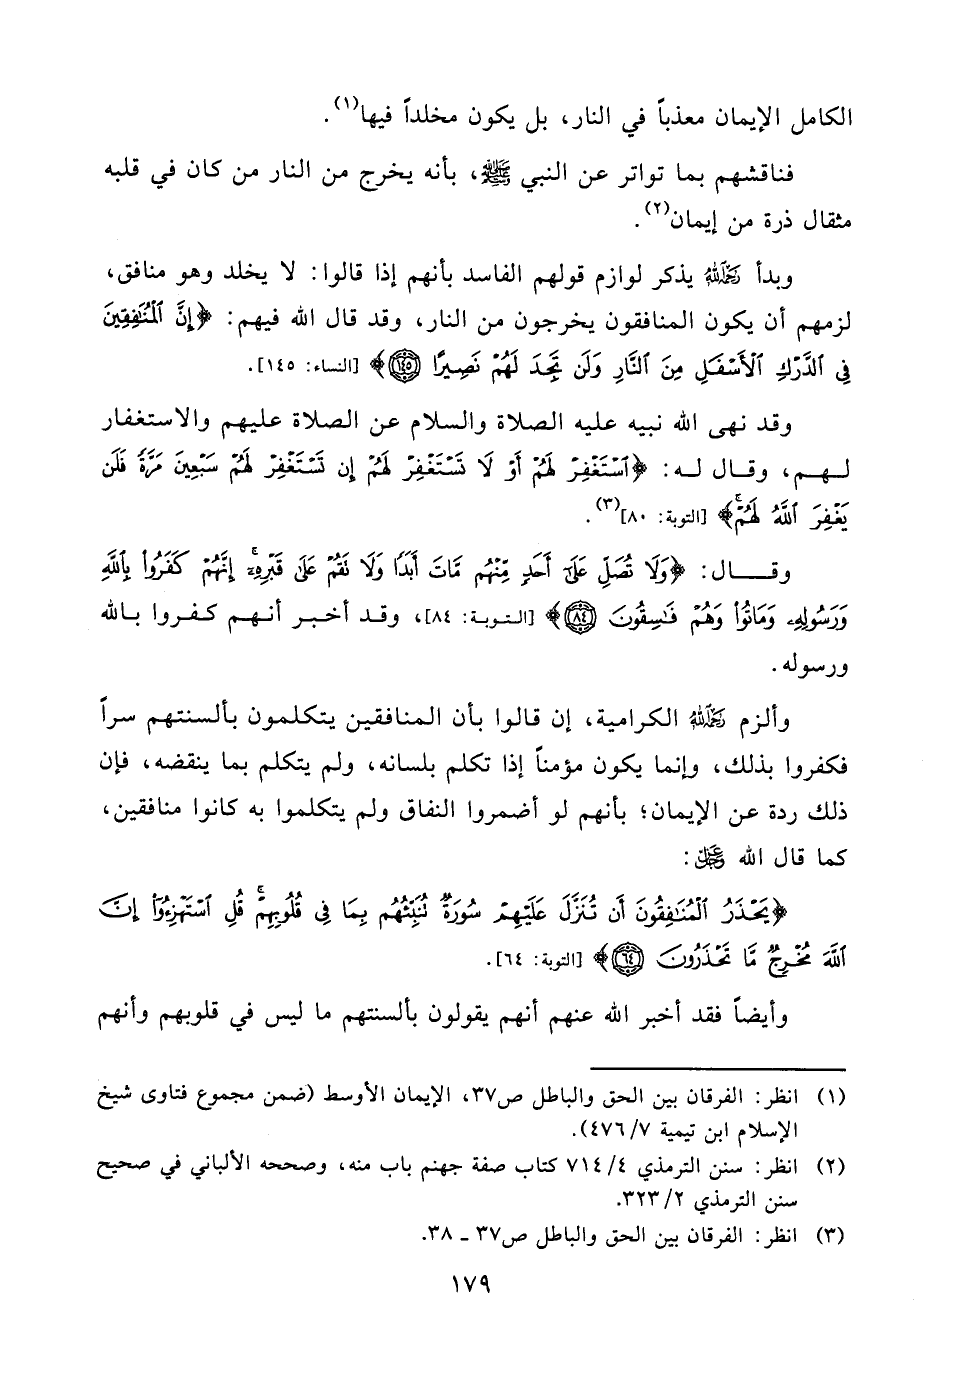 الكامل الإيمان معذباً في النار، بل يكون مخلداً فيها(١).
فناقشهم بما تواتر عن النبي ﷺ، بأنه يخرج من النار من كان في قلبه
مثقال ذرة من إيمان(٢).
وبدأ رحمه الله يذكر لوازم قولهم الفاسد بأنهم إذا قالوا: لا يخلد وهو منافق،
لزمهم أن يكون المنافقون يخرجون من النار، وقد قال الله فيهم: ﴿إِنَّ ٱلْمُنَٰفِقِينَ
فِى ٱلدَّرْكِ ٱلْأَسْفَلِ مِنَ ٱلنَّارِ وَلَن تَجِدَ لَهُمْ نَصِيرًا ١٤٥﴾ [النساء: ١٤٥].
وقد نهى الله نبيه عليه الصلاة والسلام عن الصلاة عليهم والاستغفار
لهم، وقال له: ﴿ٱسْتَغْفِرْ لَهُمْ أَوْ لَا تَسْتَغْفِرْ لَهُمْ إِن تَسْتَغْفِرْ لَهُمْ سَبْعِينَ مَرَّةً فَلَن
يَغْفِرَ ٱللَّهُ لَهُمْ﴾ [التوبة: ٨٠](٣).
وقال: ﴿وَلَا تُصَلِّ عَلَىٰٓ أَحَدٍ مِّنْهُم مَّاتَ أَبَدًا وَلَا نَقُمْ عَلَىٰ قَبْرِهِۦٓ ۖ إِنَّهُمْ كَفَرُوا۟ بِٱللَّهِ
وَرَسُولِهِۦ وَمَاتُوا۟ وَهُمْ فَٰسِقُونَ ٨٤﴾ [التوبة: ٨٤]، وقد أخبر أنهم كفروا بالله
ورسوله.
وألزم رحمه الله الكرامية، إن قالوا بأن المنافقين يتكلمون بألسنتهم سراً
فكفروا بذلك، وإنما يكون مؤمناً إذا تكلم بلسانه، ولم يتكلم بما ينقضه، فإن
ذلك ردة عن الإيمان؛ بأنهم لو أضمروا النفاق ولم يتكلموا به كانوا منافقين،
كما قال الله عز وجل:
﴿يَحْذَرُ ٱلْمُنَٰفِقُونَ أَن تُنَزَّلَ عَلَيْهِمْ سُورَةٌ تُنَبِّئُهُم بِمَا فِى قُلُوبِهِمْ ۚ قُلِ ٱسْتَهْزِءُوٓا۟ إِنَّ
ٱللَّهَ مُخْرِجٌ مَّا تَحْذَرُونَ ٦٤﴾ [التوبة: ٦٤].
وأيضاً فقد أخبر الله عنهم أنهم يقولون بألسنتهم ما ليس في قلوبهم وأنهم
(١) انظر: الفرقان بين الحق والباطل ص٣٧، الإيمان الأوسط (ضمن مجموع فتاوى شيخ
الإسلام ابن تيمية ٧/ ٤٧٦).
(٢) انظر: سنن الترمذي ٤/ ٧١٤ كتاب صفة جهنم باب منه، وصححه الألباني في صحيح
سنن الترمذي ٢/ ٣٢٣.
(٣) انظر: الفرقان بين الحق والباطل ص٣٧ ـ ٣٨.
١٧٩